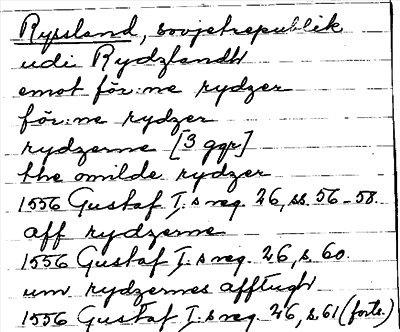 Ryssland, sovjetrepublik
udi Rydzlandh
emot för:ne rydzer
för:ne rydzer
rydzerne [3 ggr]
the omilde rydzer
1556 Gustaf I:s reg. 26, ss. 56-58.
aff rydzerne
1556 Gustaf I:s reg. 26, s. 60.
um rydzernes afftugh
1556 Gustaf I:s reg. 26, s. 61 (forts.)